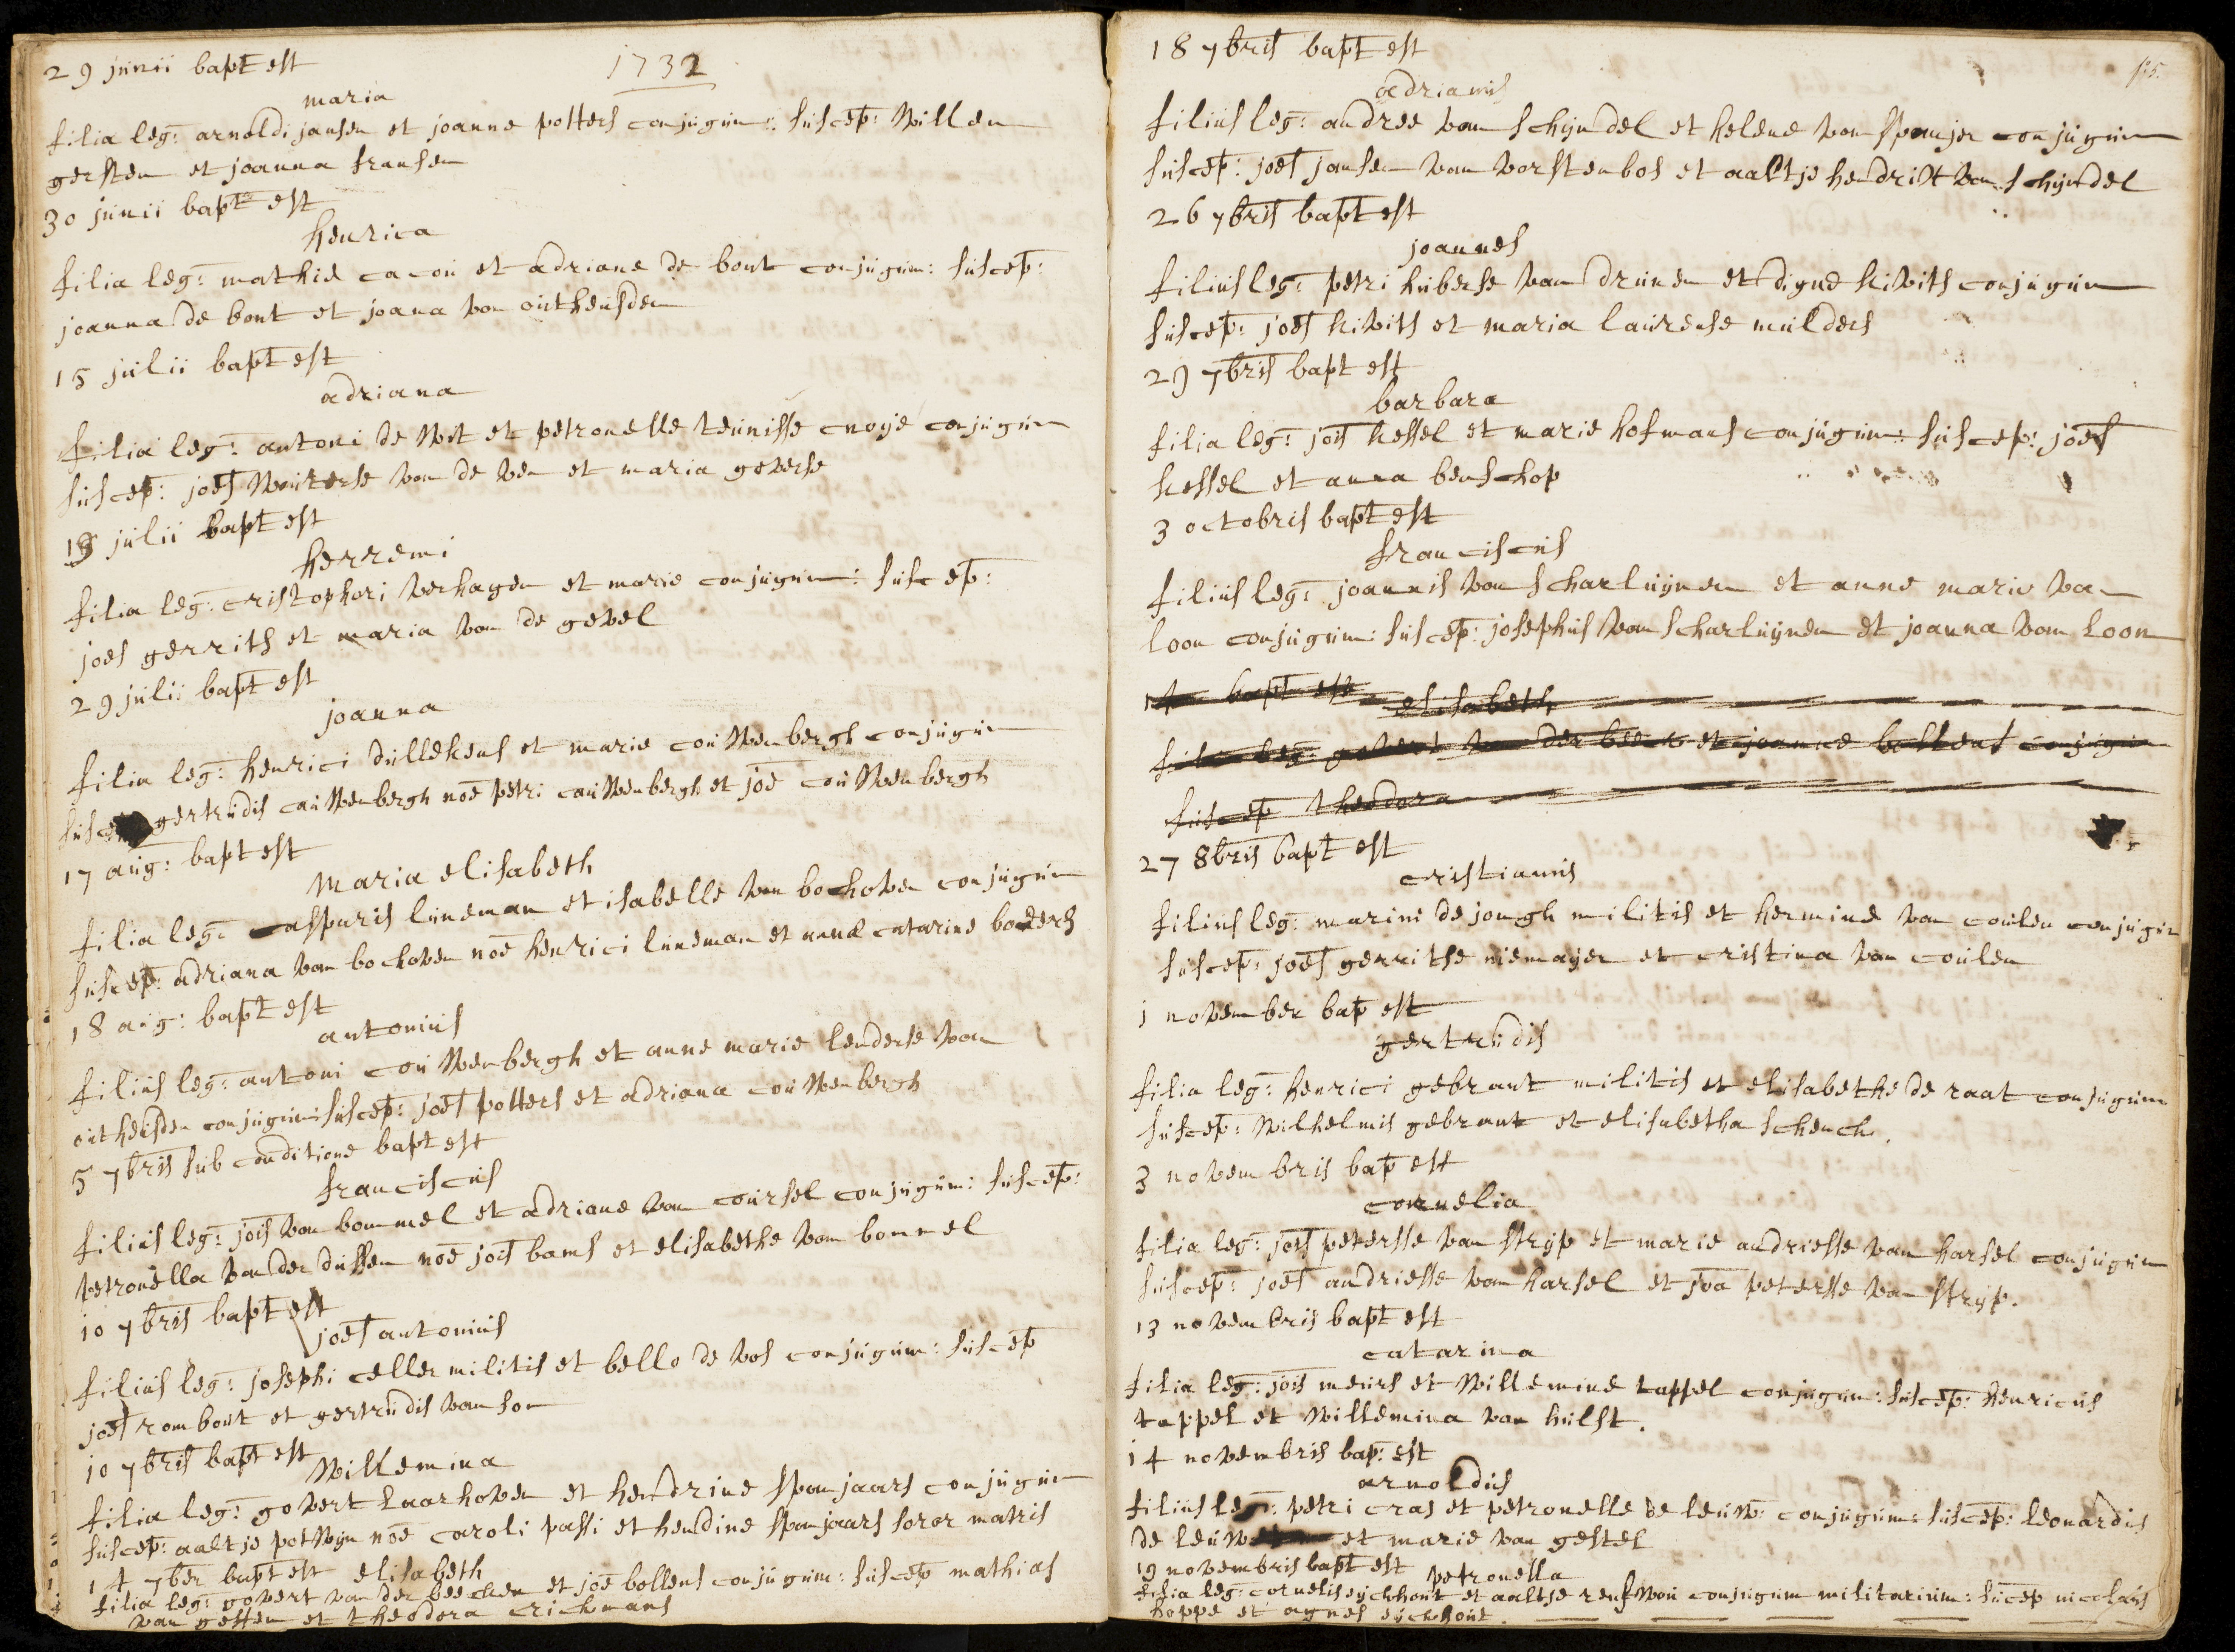 29 junii bapt est
1732
maria
filia leg: arnoldi jansen et joanne potters conjugum: suscep: Willem
gersten et joanna fransen
30 junii bapt est
henrica
filia leg: mathie cacou et adriane de bont conjugum: suscep:
joanna de bont et joana van outheusden
15 julii bapt est
adriana
filia leg: antoni de Wit et petronelle teunisse cnoye conjugum
suscep: joes Wouterse van de ven et maria goverse
19 julii bapt est
herremi
filia leg: cristophori verhagen et marie conjugum: suscep:
joes gerrits et maria van de gevel
29 julii bapt est
joanna
filia leg: henrici dullekens et marie couWenbergh conjugum
suscep gertrudis couWenbergh noe petri couWenbergh et joe couWenbergh
17 aug: bapt est
Maria elisabeth
filia leg: casparis luneman et isabelle van bochoven conjugum
suscep: adriana van bochoven noe henrici luneman et anne catarine boeders
18 aug: bapt est
antonius
filius leg: antoni couWenbergh et anne marie lenderse van
outheusden conjugum: suscep: joes potters et adriana couWenbergh
5 7bris sub conditione bapt est
franciscus
filius leg: jois van bommel et adriane van coursel conjugum: suscep:
petronella van der dussen noe jois bams et elisabethe van bommel
10 7bris bapt est
joes antonius
filius leg: josephi celler militis et bello de vos conjugum: suscep
joes rombout et gertrudis van son
10 7bris bapt est
Willemina
filia leg: govert Laarhoven et hendrine spanjaars conjugum
suscep: aaltje potWyn noe caroli passi et hendine spanjaars soror matris
14 7ber bapt est elisabeth
filia leg: govert van der beecken et joe bollens conjugum: suscep mathias
van gessen et theodora crichmans
18 7bris bapt est
adrianus
filius leg: andree van schyndel et helene van spanjer conjugum
suscep: joes jansen van vorstenbos et aaltje hendrix van schyndel
26 7bris bapt est
joannes
filius leg: petri huberse van drunen et digne kivits conjugum
suscep: joes kivits et maria laurense mulders
29 7bris bapt est
barbara
filia leg: jois kessel et marie hofmans conjugum: suscep: joes
kessel et anna benschop
3 octobris bapt est
franciscus
filius leg: joannis van scharluynen et anne marie van
loon conjugum: suscep: josephus van scharluynen et joanna van Loon
14 bapt est
elisabeth
filia leg: govert van der beeck et joanne bollens conjugum
suscep theodora
27 8bris bapt est
cristianus
filius leg: marini de jongh militis et hermine van coulen conjugum
suscep: joes gerritse niemayer et cristina van coulen
1 november bap est
gertrudis
filia leg: henrici gebrant militis et elisabethe de raat conjugum
suscep: Wilhelmus gebrant et elisabetha schenck.
3 novembris bap est
cornelia
filia leg: jois petersse van stryp et marie andriesse van harsel conjugum
suscep: joes andriesse van harsel et joa petersse van stryp.
13 novembris bapt est
catarina
filia leg: jois meurs et Willemine tappel conjugum: suscep: henricus
tappel et Willemina van hulst.
14 novembris bap: est
arnoldus
filius leg: petri cras et petronelle de leuW: conjugum: suscep: leonardus
de leuW et marie van gestel
19 novembris bapt est petronella
filia leg: cornelis eyckhout et aaltse rensWou conjugum militarium: suscep nicolaus
hoppe et agnes eyckhout.